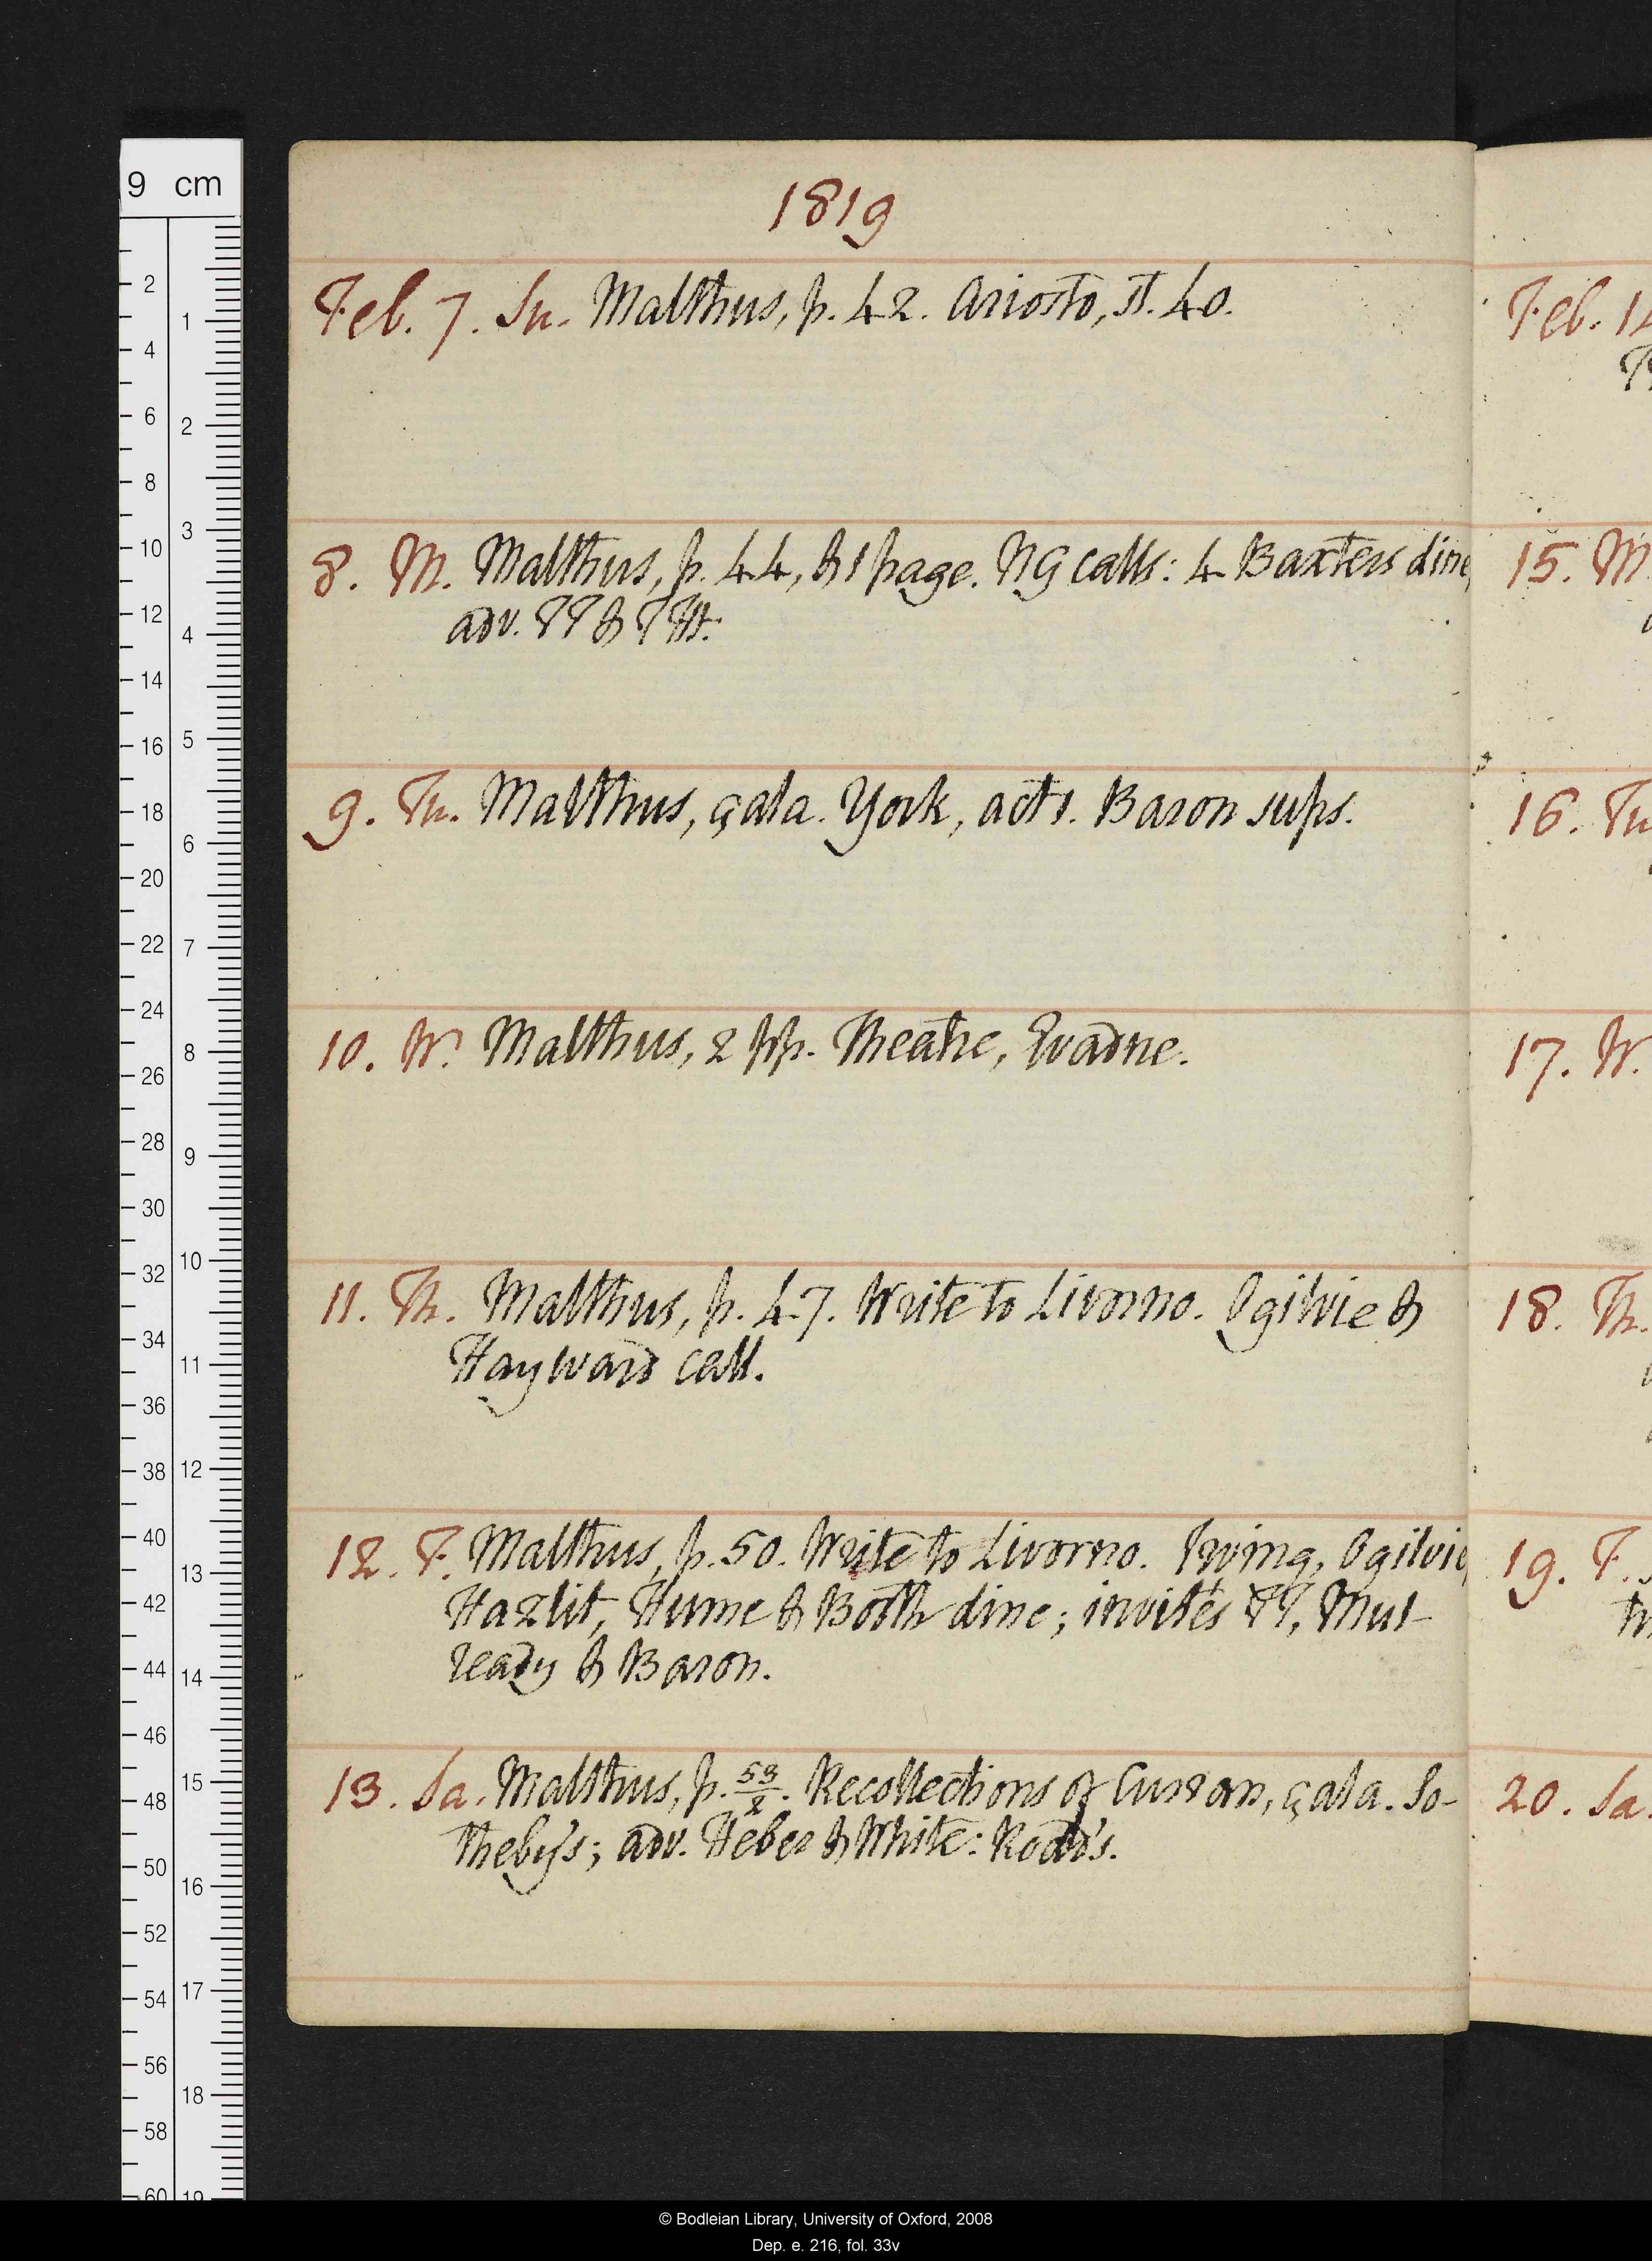 1819
Feb. 7. Su. Malthus, p. 42. Ariosto, st. 40.
8. M. Malthus, p. 44, & 1 page. NG calls: 4 Baxters dine,
adv. PP & PHt.
9. Tu. Malthus, çala. York, act 1. Baron sups.
10. W. Malthus, 2 pp. Theatre, Evadne.
11. Th. Malthus, p. 47. Write to Livorno. Ogilvie &
Hayward call.
12. F. Malthus, p. 50. Write to Livorno. Irving, Ogilvie,
Hazlit, Hume & Booth dine; invités PP, Mul-
ready & Baron.
13. Sa. Malthus, p. 53/2. Recollections of Curran, çala. So-
theby's; adv. Heber & White: Rodd's.
Feb. 14
15. M
16. Tu
17. W.
18. Th.
19. F.
20. Sa.
9 cm
2
4
6
8
10
12
14
16
18
20
22
24
26
28
30
32
34
36
38
40
42
44
46
48
50
52
54
56
58
60
1
2
3
4
5
6
7
8
9
10
11
12
13
14
15
16
17
18
19
© Bodleian Library, University of Oxford, 2008
Dep. e. 216, fol. 33v